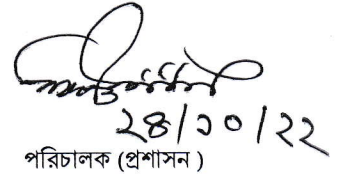 ২৪/১০/২২
পরিচালক (প্রশাসন )